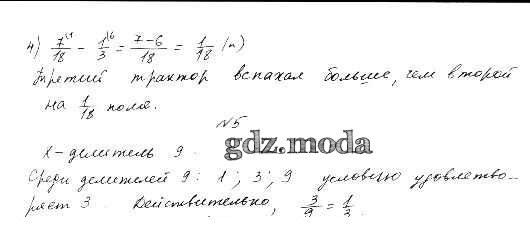 4) 7/18 \1 - 1/3 \6 = 7-6/18 = 1/18 (п)
Третий трактор вспахал больше, чем второй
на 1/18 поля.
№5
x - делитель 9.
gdz.moda
Среди делителей 9: 1; 3; 9 условию удовлетво-
ряет 3. Действительно, 3/9 = 1/3.